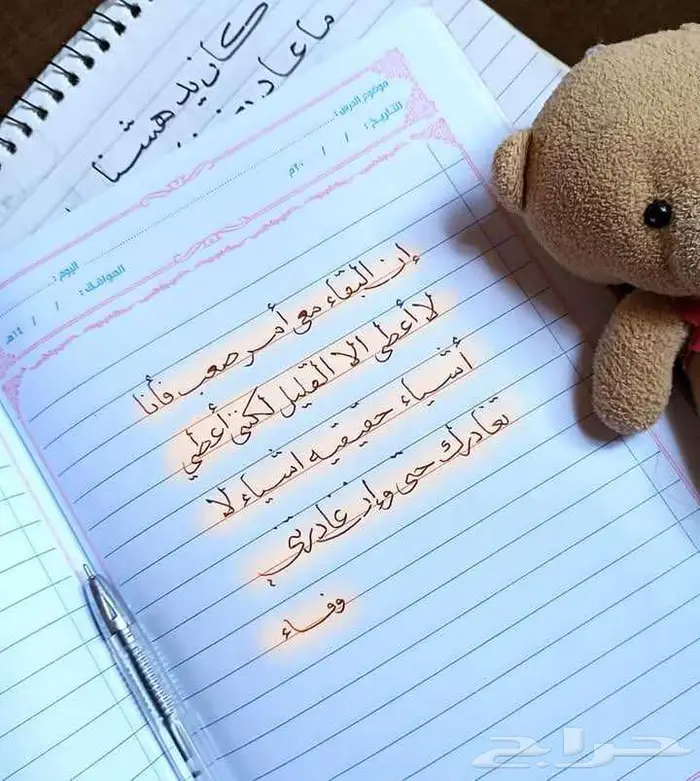 كان يدهشنا
ما عاد
موضوع الدرس:
التاريخ: / / ٢٠م
اليوم:
الموافق: / / ١٤هـ
إن البقاء معي أمر صعب فأنا
لا أعطي الا القليل لكنني أعطي
أشياء حقيقيه اشياء لا
تغادرك حتى وإن غادرتني
وفاء
حراج